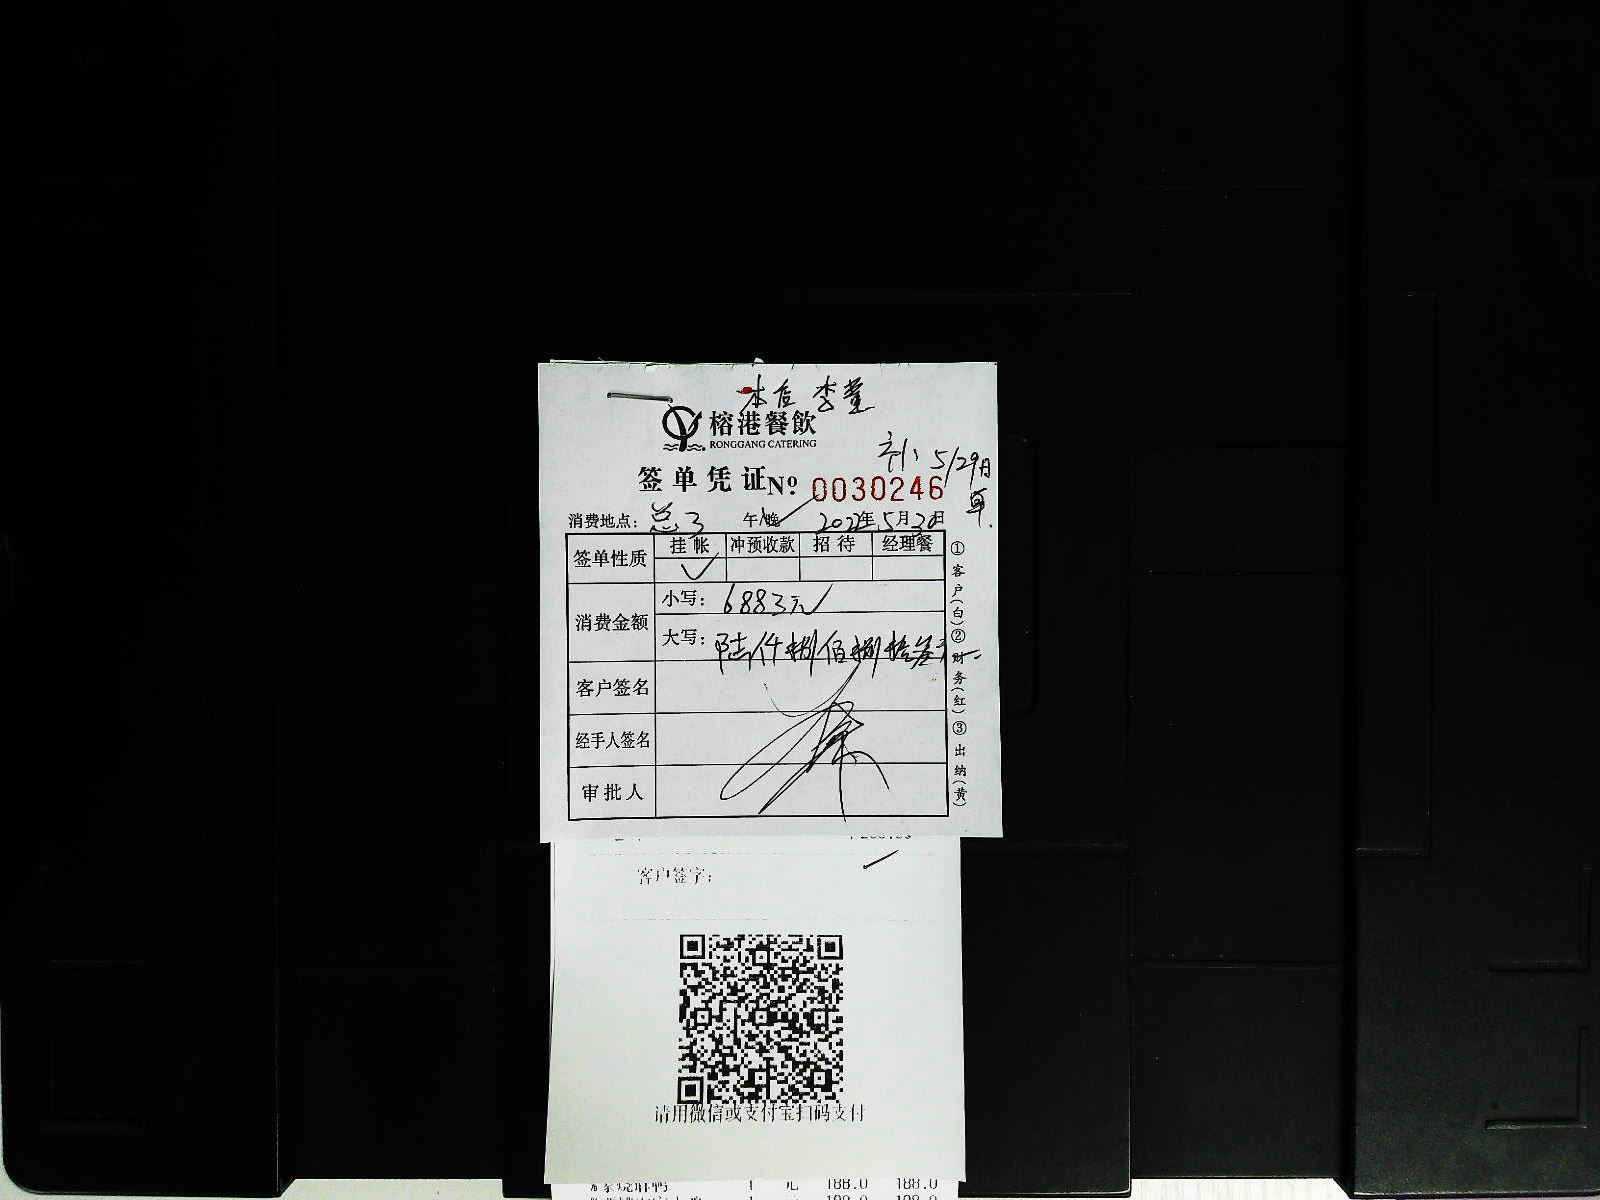 李董
榕港餐飲
RONGGANG CATERING
补: 5/29日
单.
签单凭证 Nº 0030246
消费地点: 总3 午/晚 2022年5月30日
签单性质 挂帐 冲预收款 招待 经理餐
消费金额 小写: 6883元
大写: 陆仟捌佰捌拾叁元
客户签名
经手人签名
审批人
①客户(白)②财务(红)③出纳(黄)
客户签字:
请用微信或支付宝扫码支付
1 元 188.0 188.0